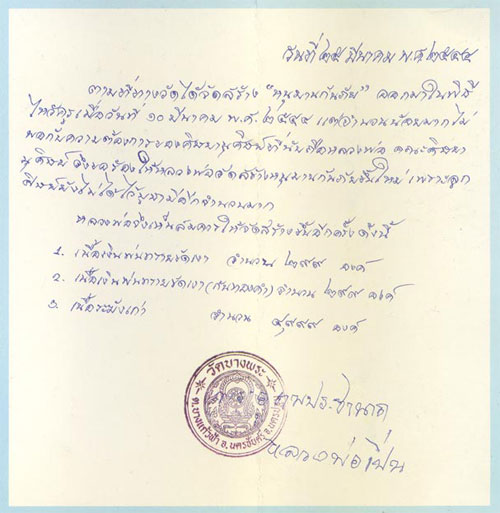 วันที่ ๒๕ มีนาคม พ.ศ. ๒๕๔๔
ตามที่ทางวัดได้จัดสร้าง "หนุมานกันภัย" ออกมาในพิธี
ไหว้ครูเมื่อวันที่ ๑๐ มีนาคม พ.ศ. ๒๕๔๔ แต่จำนวนน้อยมากไม่
พอกับความต้องการของศิษยานุศิษย์ที่นับถือหลวงพ่อ คณะศิษยา
นุศิษย์ จึงขอร้องให้หลวงพ่อจัดสร้างหนุมานกันภัยขึ้นใหม่ เพราะลูก
ศิษย์ยังไม่ได้ไว้บูชามีอีกจำนวนมาก
หลวงพ่อจึงเห็นสมควรให้จัดสร้างขึ้นอีกครั้งดังนี้
1. เนื้อเงินพ่นทรายขัดเงา จำนวน ๒๙๙ องค์
๒. เนื้อเงินพ่นทรายขัดเงา ( ) จำนวน ๒๙๙ องค์
๓. เนื้อระฆังเก่า จำนวน ๔๙๙๙ องค์
วัดบางพระ
ต.บางแก้วฟ้า อ.นครชัยศรี จ.นครปฐม
หลวงพ่อเปิ่น